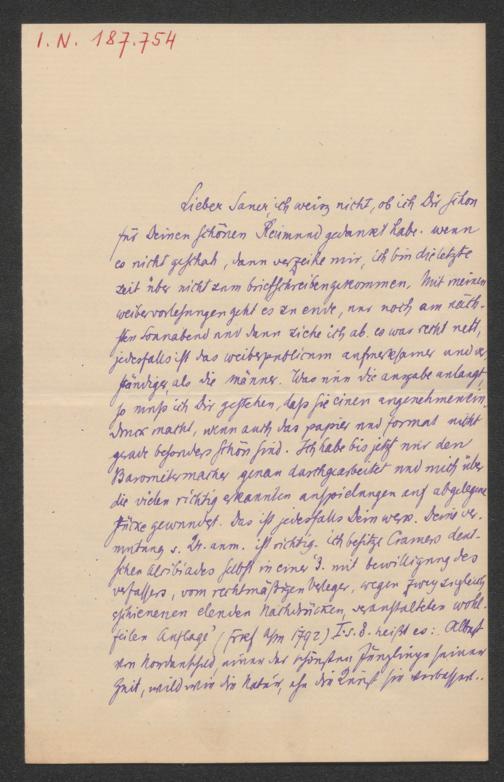 I. N. 187.754
Lieber Sauer, ich weiss nicht, ob ich Dir schon
für Deinen schönen Raimund gedankt habe. wenn
es nicht geschah, dann verzeihe mir, ich bin die letzte
zeit über nicht zum briefschreiben gekommen. Mit meinen
weibervorlesungen geht es zu ende, nur noch am näch-
sten Sonnabend und dann ziehe ich ab. es war recht nett,
jedesfalls ist das weiberpublicum aufmerksamer und ver-
ständiger, als die männer. Was nun die ausgabe anlangt,
so muss ich Dir gestehen, dass sie einen angenehmen ein-
druck macht, wenn auch das papier und format nicht
gerade besonders schön sind. Ich habe bis jetzt nur den
Barometermacher genau durchgearbeitet und mich über
die vielen richtig erkannten anspielungen auf abgelegene
stücke gewundert. Das ist jedesfalls Dein werk. Deine ver-
mutung s. 2. anm. ist richtig. ich besitze Cramers deut-
schen Alcibiades selbst in einer 3. mit bewilligung des
verfassers, vom rechtmäßigen Verleger, wegen zwey zugleich
erschienenen elenden Nachdrücken, veranstalteten wohl-
feilen Auflage (1792) I. s. 8. heißt es: Albert
von Nordenschild einer der schönsten Jünglinge seiner
Zeit, wild wie die Natur, ehe die Kunst sie verbessert..